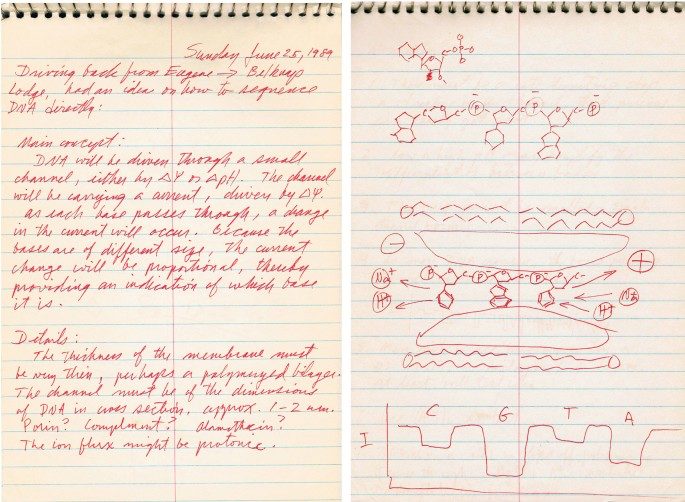 Sunday June 25, 1989
Driving back from Eugene → Belknap
Lodge, had an idea on how to sequence
DNA directly:
Main concept:
DNA will be driven through a small
channel, either by ΔΨ or ΔpH. The channel
will be carrying a current, driven by ΔΨ.
As each base passes through, a change
in the current will occur. Because the
bases are of different size, the current
change will be proportional, thereby
providing an indication of which base
it is.
Details:
The thickness of the membrane must
be very thin, perhaps a polymerized bilayer.
The channel must be of the dimensions
of DNA in cross section, approx. 1-2 nm.
Porin? Compliment? Alamethicin?
The ion flux might be protonic.
O P O
O
P P P
− − −
− +
Na+ P P P
H+ Na+
H+
C G T A
I